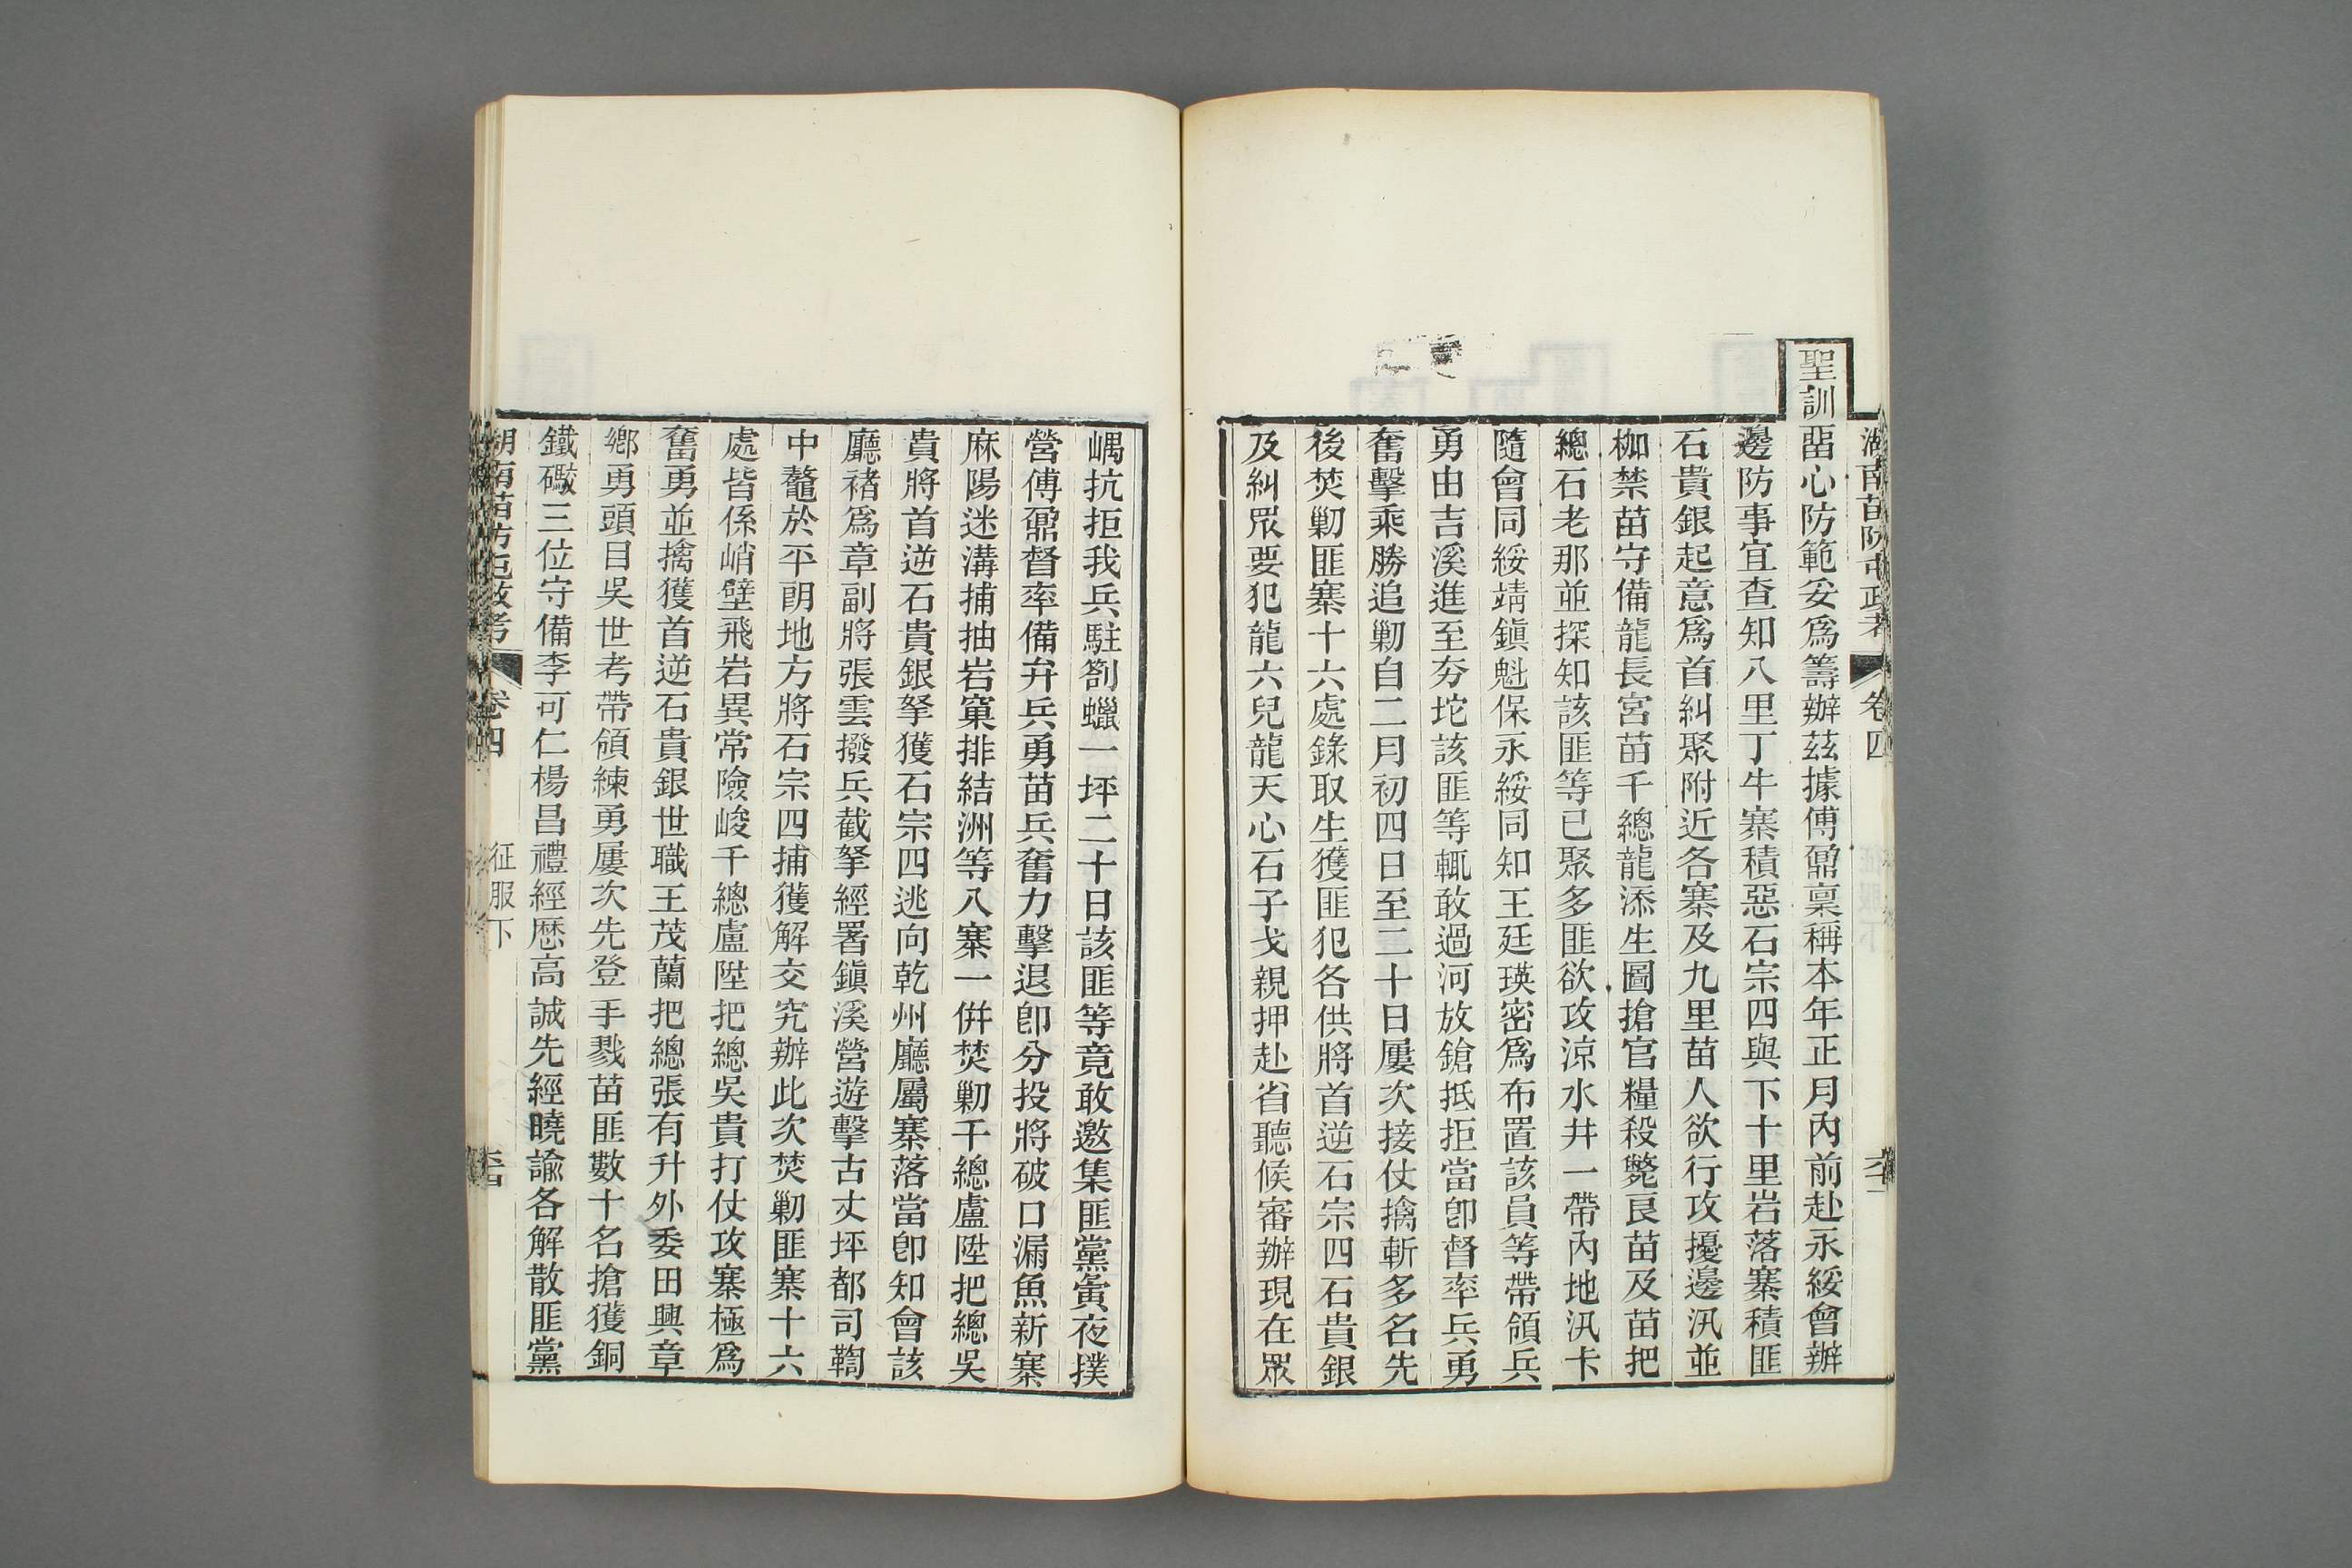 湖南苗防屯政考 卷四
聖訓畱心防範妥爲籌辦茲據傅鼐稟稱本年正月內前赴永綏會辦
邊防事宜查知八里丁牛寨積惡石宗四與下十里岩落寨積匪
石貴銀起意爲首糾聚附近各寨及九里苗人欲行攻擾邊汛並
枷禁苗守備龍長宮苗千總龍添生圖搶官糧殺斃良苗及苗把
總石老那並探知該匪等已聚多匪欲攻涼水井一帶內地汛卡
隨會同綏靖鎭魁保永綏同知王廷瑛密爲布置該員等帶領兵
勇由吉溪進至夯坨該匪等輒敢過河放鎗抵拒當卽督率兵勇
奮擊乘勝追勦自二月初四日至二十日屢次接仗擒斬多名先
後焚勦匪寨十六處錄取生獲匪犯各供將首逆石宗四石貴銀
及糾眾要犯龍六兒龍天心石子戈親押赴省聽候審辦現在眾
嵎抗拒我兵駐劄蠟一坪二十日該匪等竟敢邀集匪黨夤夜撲
營傅鼐督率備弁兵勇苗兵奮力擊退卽分投將破口漏魚新寨
麻陽迷溝捕抽岩窠排結洲等八寨一併焚勦千總盧陞把總吳
貴將首逆石貴銀拏獲石宗四逃向乾州廳屬寨落當卽知會該
廳褚爲章副將張雲撥兵截拏經署鎭溪營遊擊古丈坪都司鞫
中鼇於平朗地方將石宗四捕獲解交究辦此次焚勦匪寨十六
處皆係峭壁飛岩異常險峻千總盧陞把總吳貴打仗攻寨極爲
奮勇並擒獲首逆石貴銀世職王茂蘭把總張有升外委田興章
鄉勇頭目吳世考帶領練勇屢次先登手戮苗匪數十名搶獲銅
鐵礮三位守備李可仁楊昌禮經歷高誠先經曉諭各解散匪黨
湖南苗防屯政考 卷四 征服下